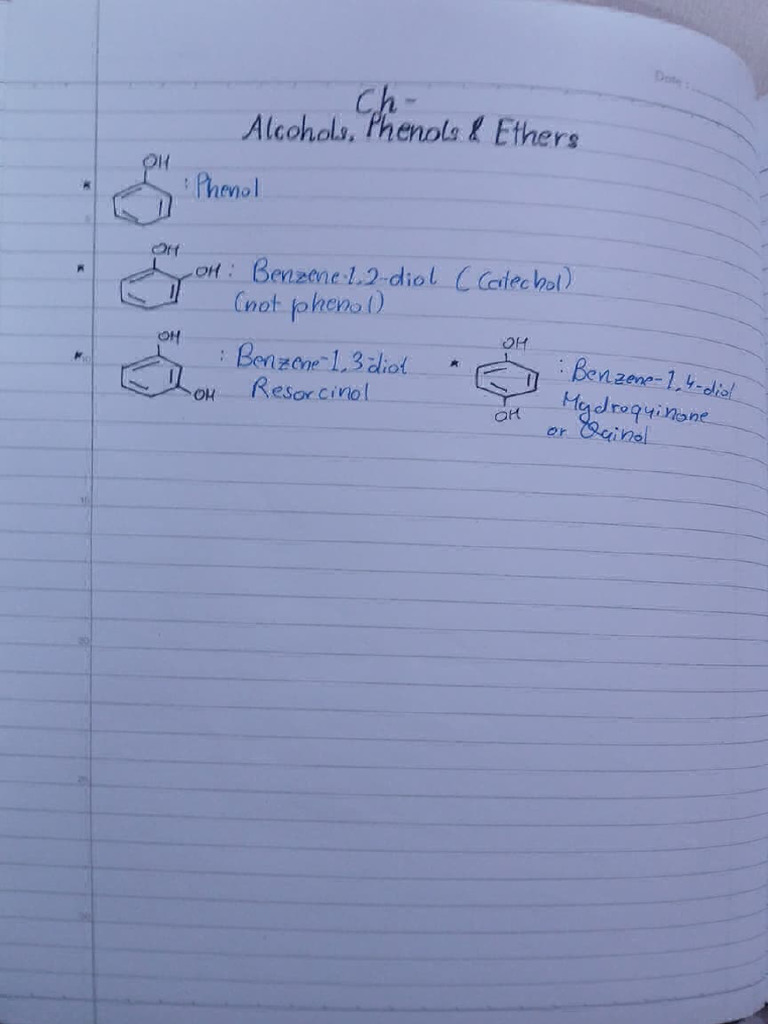 Date :
Ch-
Alcohols, Phenols & Ethers
OH
* : Phenol
OH
* OH : Benzene-1,2-diol (Catechol)
(not phenol)
OH
* : Benzene-1,3-diol
OH Resorcinol
OH
* : Benzene-1,4-diol
Hydroquinone
OH
or Quinol